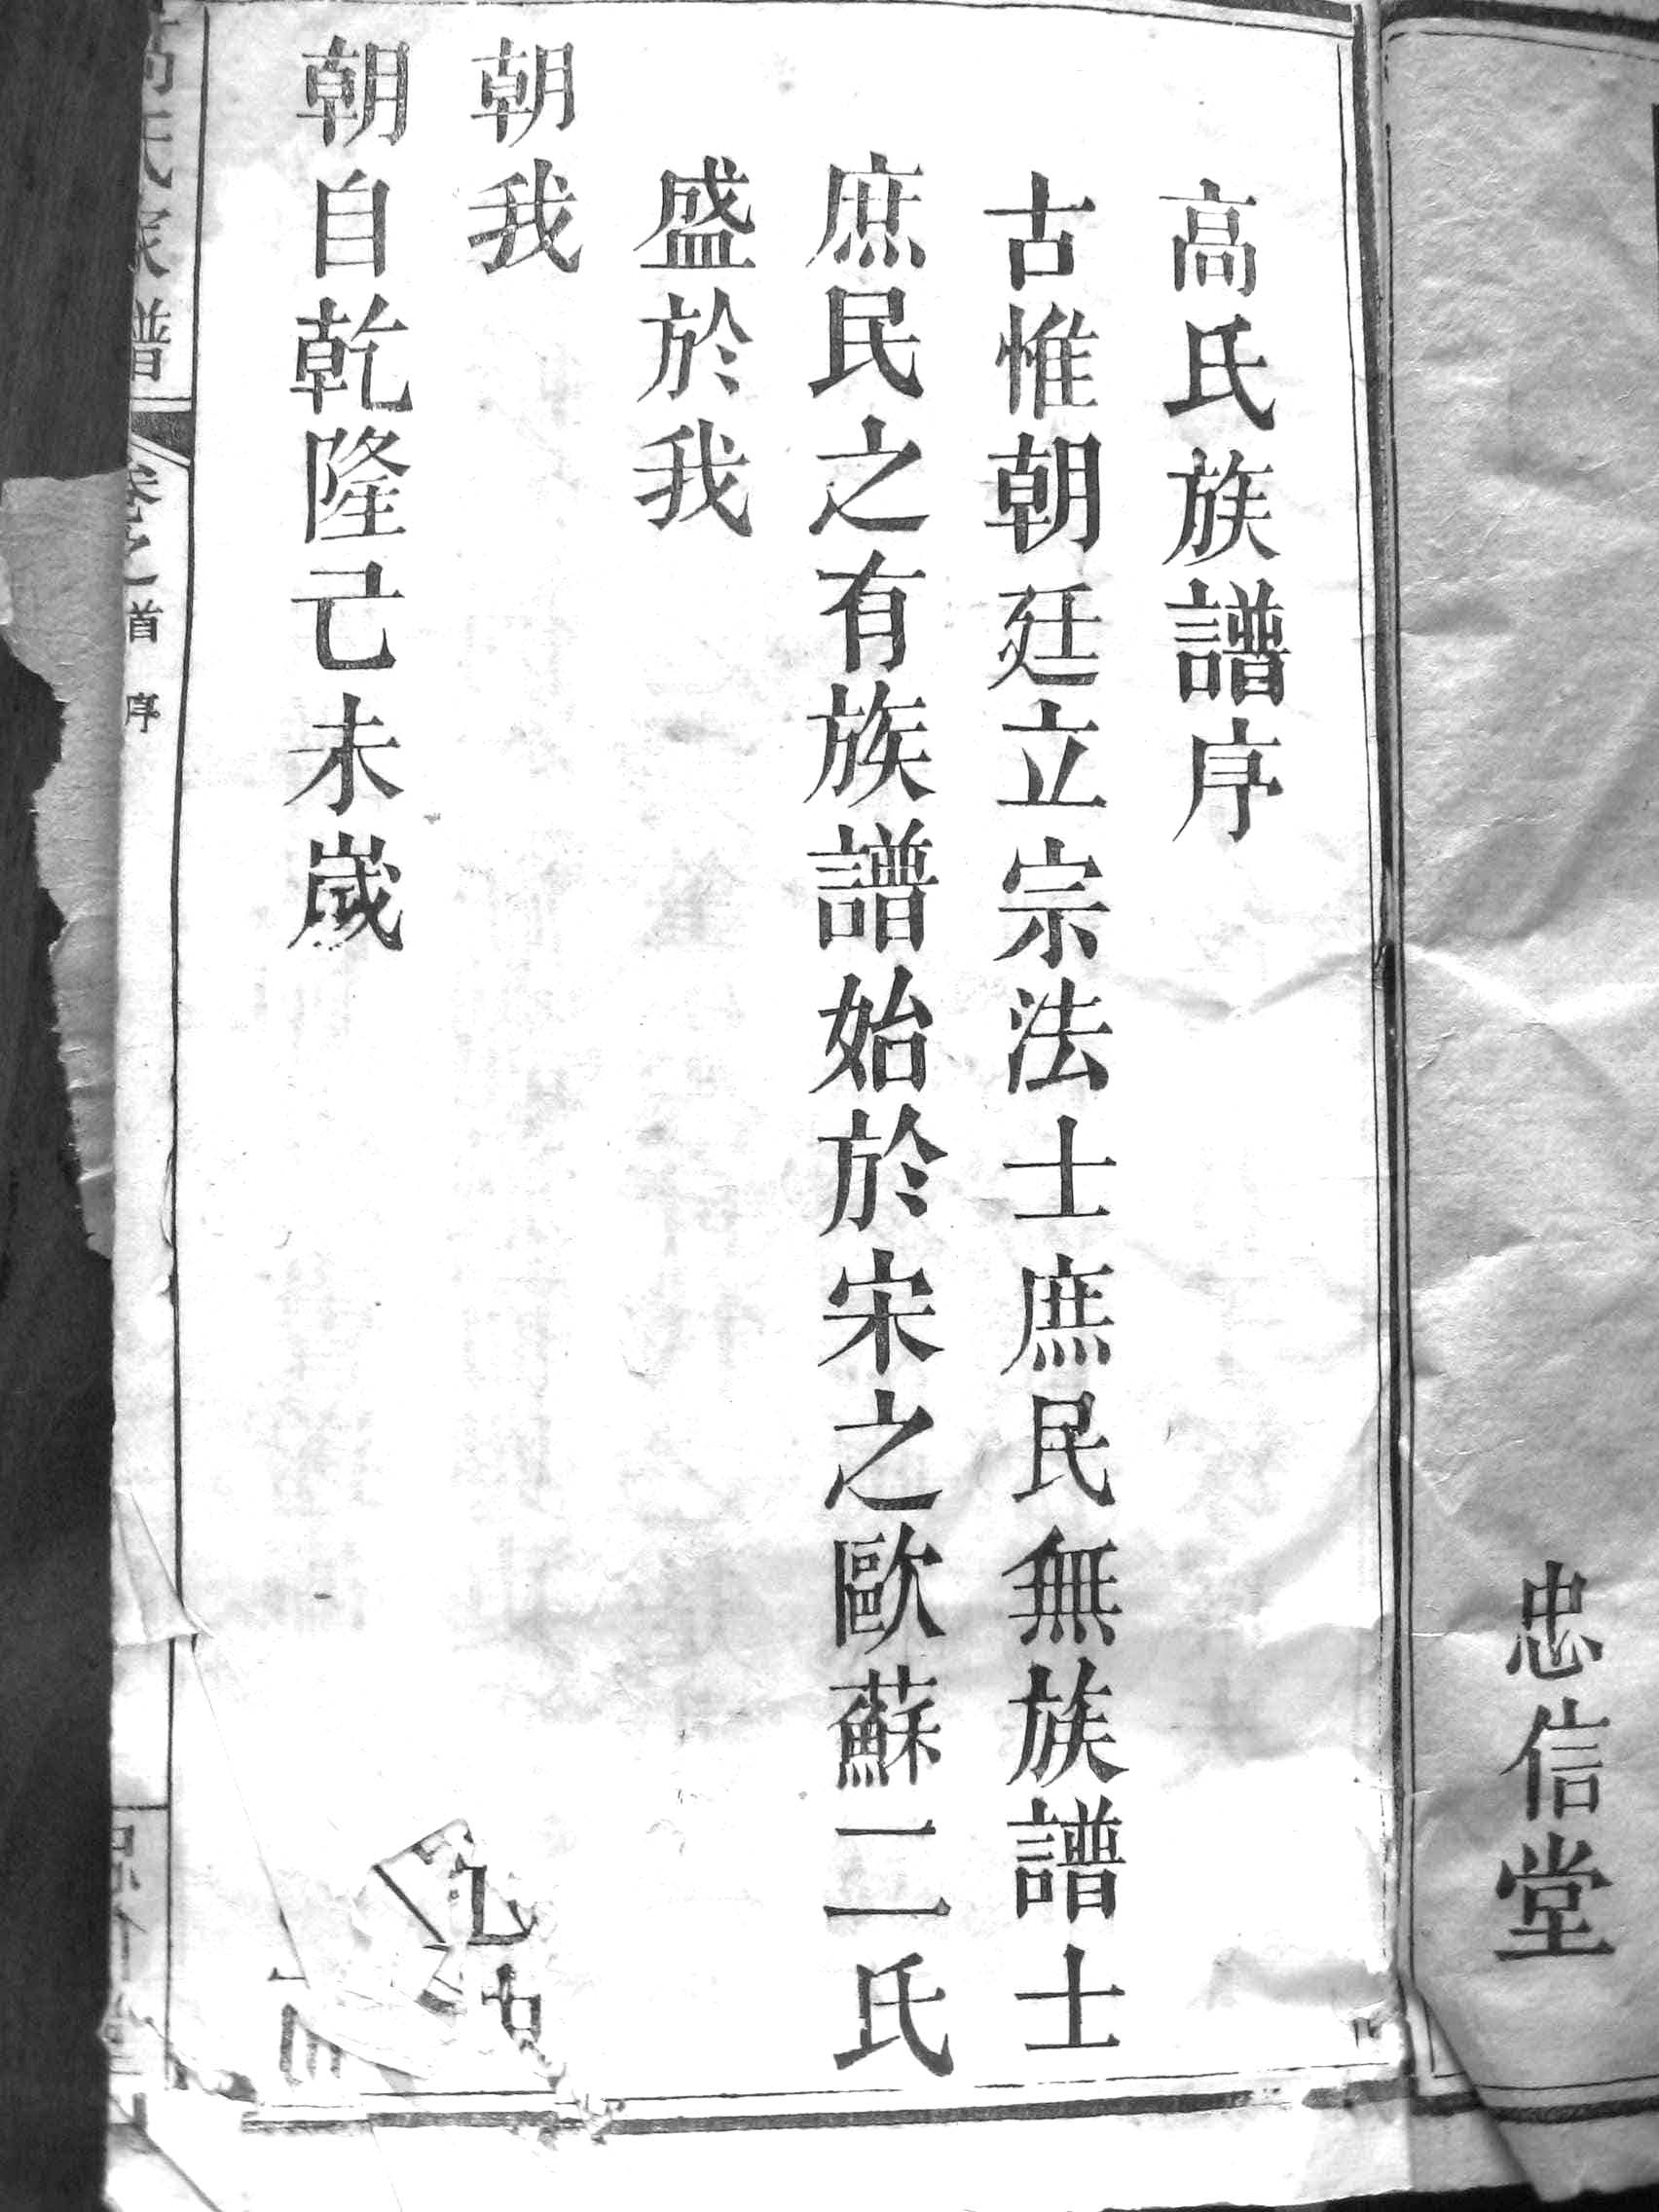 忠信堂
高氏族譜序
古惟朝廷立宗法士庶民無族譜士
庶民之有族譜始於宋之歐蘇二氏
盛於我
朝我
朝自乾隆己未歲
氏家譜
卷之首 序